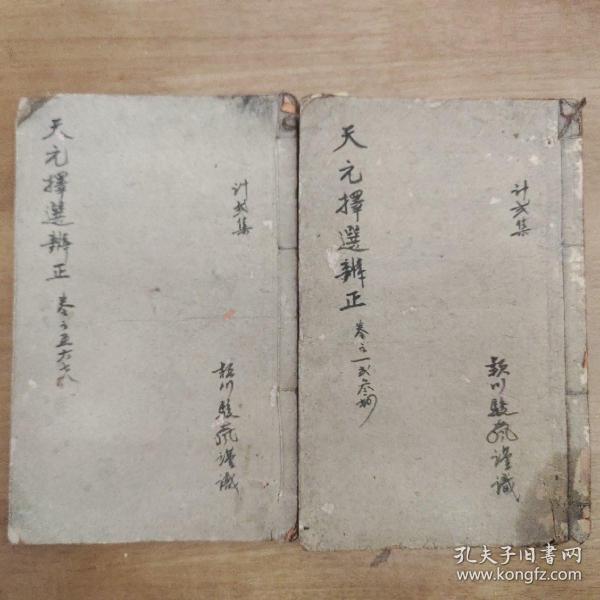 天元擇選辨正
卷之一弍叁四
计弍集
穎川駿 謹識
天元擇選辨正
卷之五六七八
计弍集
穎川駿 謹識
孔夫子旧书网
www.kongfz.com